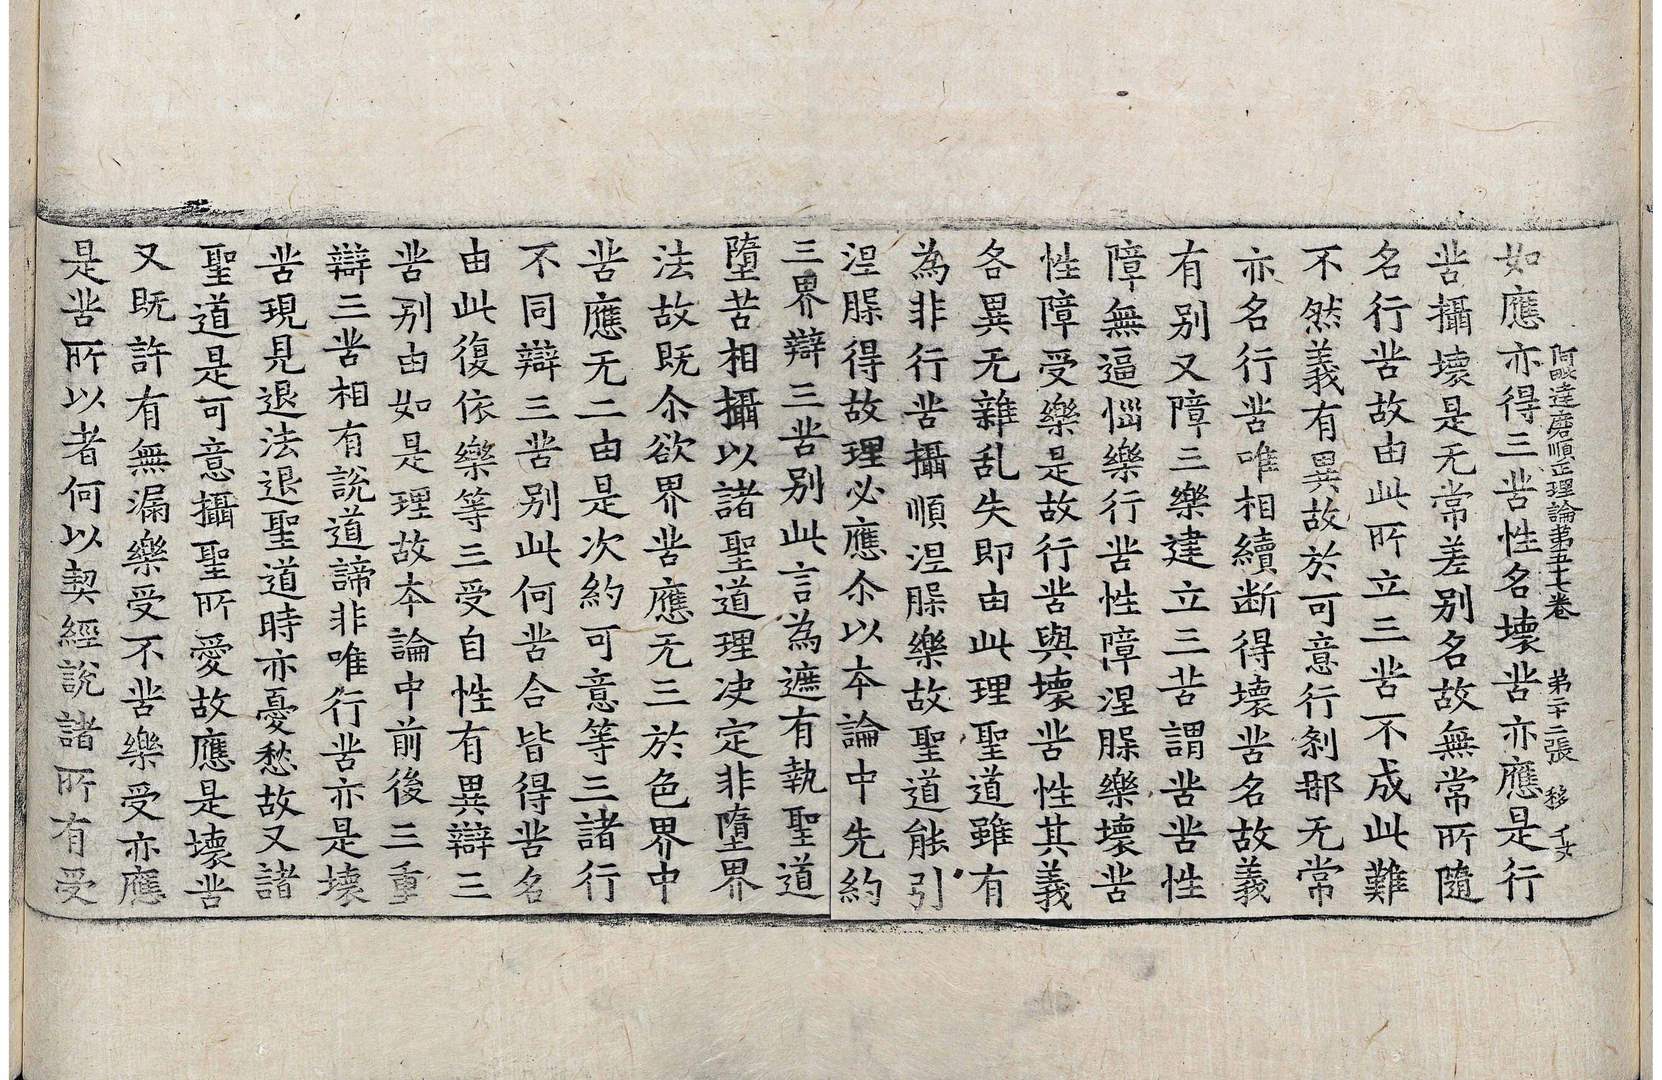 阿毗達磨順正理論第五十七卷 第二十二張 移 千女
如應亦得三苦性名壞苦亦應是行
苦攝壞是无常差別名故無常所隨
名行苦故由此所立三苦不成此難
不然義有異故於可意行剎那无常
亦名行苦唯相續断得壞苦名故義
有别又障三樂建立三苦謂苦苦性
障無逼惱樂行苦性障涅槃樂壞苦
性障受樂是故行苦與壞苦性其義
各異无雜乱失即由此理聖道雖有
為非行苦攝順涅槃樂故聖道能引
涅槃得故理必應尒以本論中先約
三界辯三苦别此言為遮有執聖道
墮苦相攝以諸聖道理决定非墮界
法故既尒欲界苦應无三於色界中
苦應无二由是次約可意等三諸行
不同辯三苦别此何苦合皆得苦名
由此復依樂等三受自性有異辯三
苦别由如是理故本論中前後三重
辯三苦相有說道諦非唯行苦亦是壞
苦現見退法退聖道時亦憂愁故又諸
聖道是可意攝聖所愛故應是壞苦
又既許有無漏樂受不苦樂受亦應
是苦所以者何以契經說諸所有受